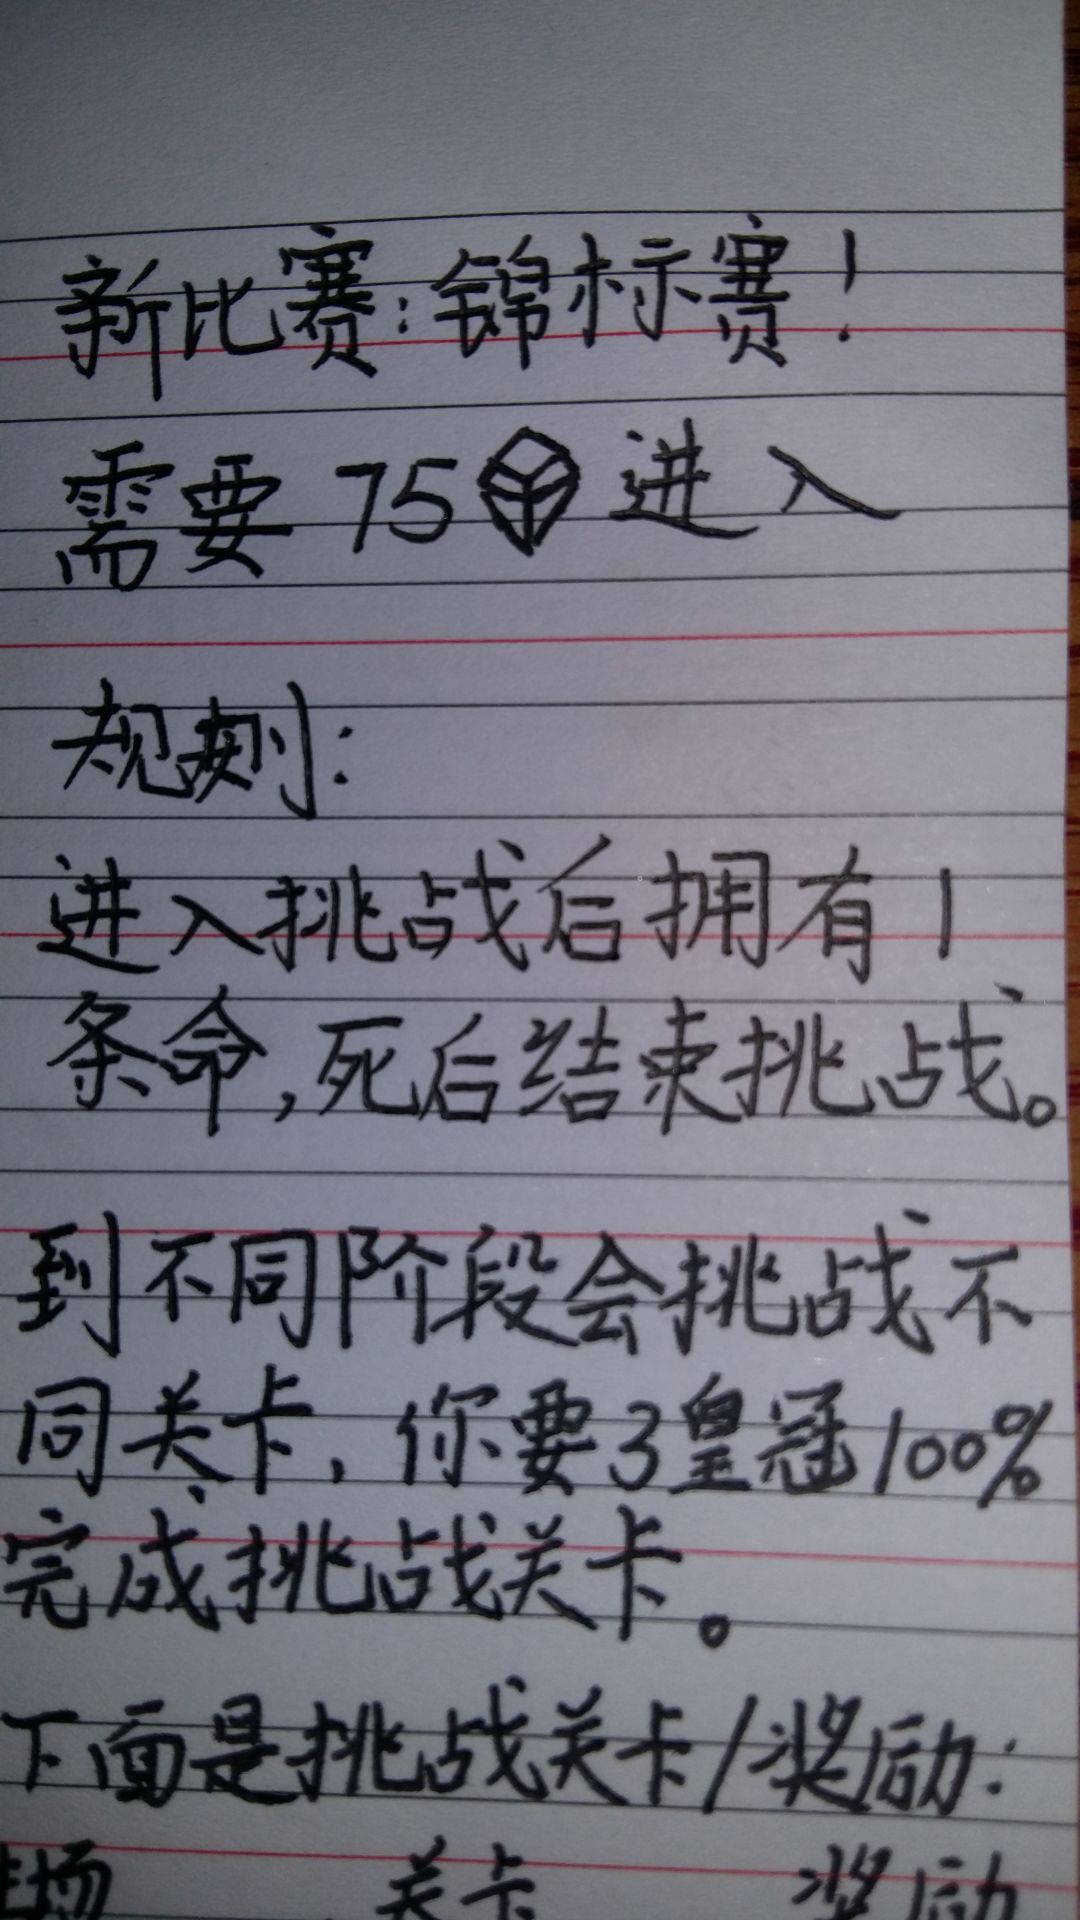 新比赛:锦标赛!
需要 75 进入
规则:
进入挑战后拥有1
条命,死后结束挑战。
到不同阶段会挑战不
同关卡,你要3皇冠100%
完成挑战关卡。
下面是挑战关卡/奖励:
场 关卡 奖励